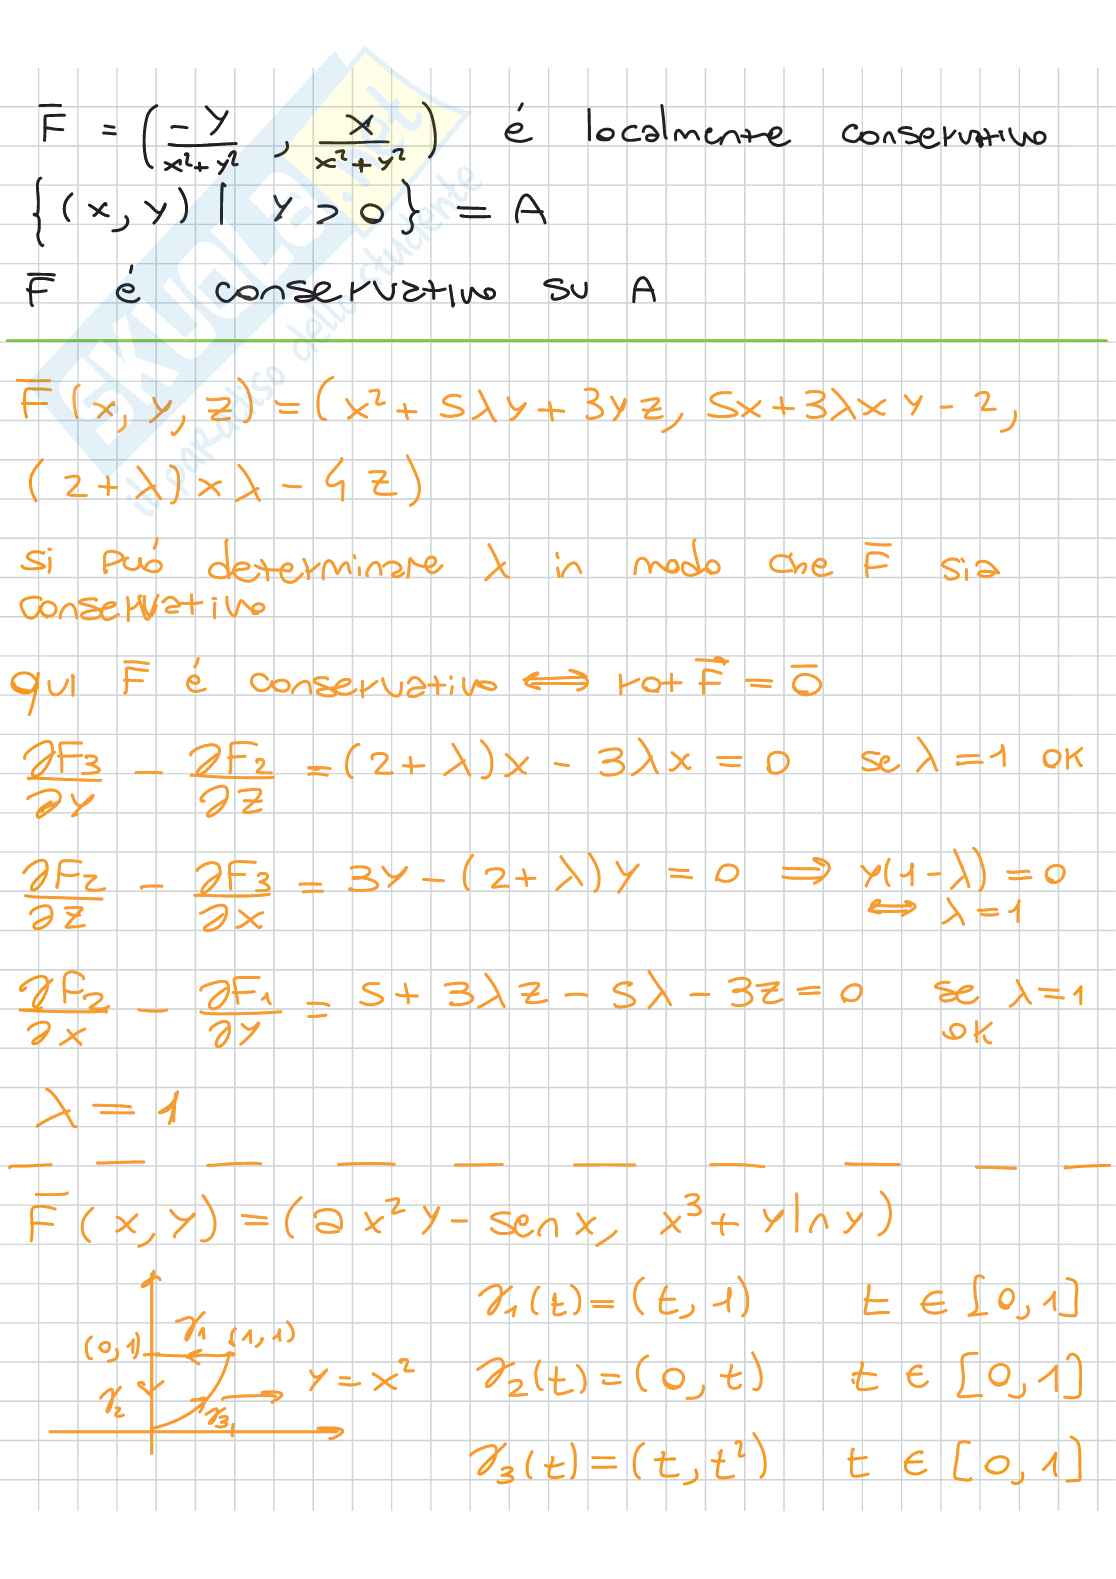 F̅ = (-y/(x²+y²), x/(x²+y²)) é localmente conservativo
{(x,y) | y > 0} = A
F̅ é conservativo su A
F̅(x,y,z) = (x² + 5λy + 3yz, 5x + 3λxy - 2,
(2+λ)xλ - 4z)
si puó determinare λ in modo che F̅ sia
conservativo
qui F̅ é conservativo ⟺ rot F̅ = 0̅
∂F₃/∂y - ∂F₂/∂z = (2+λ)x - 3λx = 0 se λ=1 ok
∂F₂/∂z - ∂F₃/∂x = 3y - (2+λ)y = 0 ⟹ y(1-λ) = 0
⟺ λ=1
∂F₂/∂x - ∂F₁/∂y = 5 + 3λz - 5λ - 3z = 0 se λ=1
ok
λ = 1
F̅(x,y) = (ax²y - sen x, x³ + y ln y)
γ₁(t) = (t,1) t ∈ [0,1]
(0,1) γ₁ (1,1)
γ₂ γ₃ y = x²
γ₂(t) = (0,t) t ∈ [0,1]
γ₃(t) = (t,t²) t ∈ [0,1]
SKUOLA.net
il paradiso dello studente